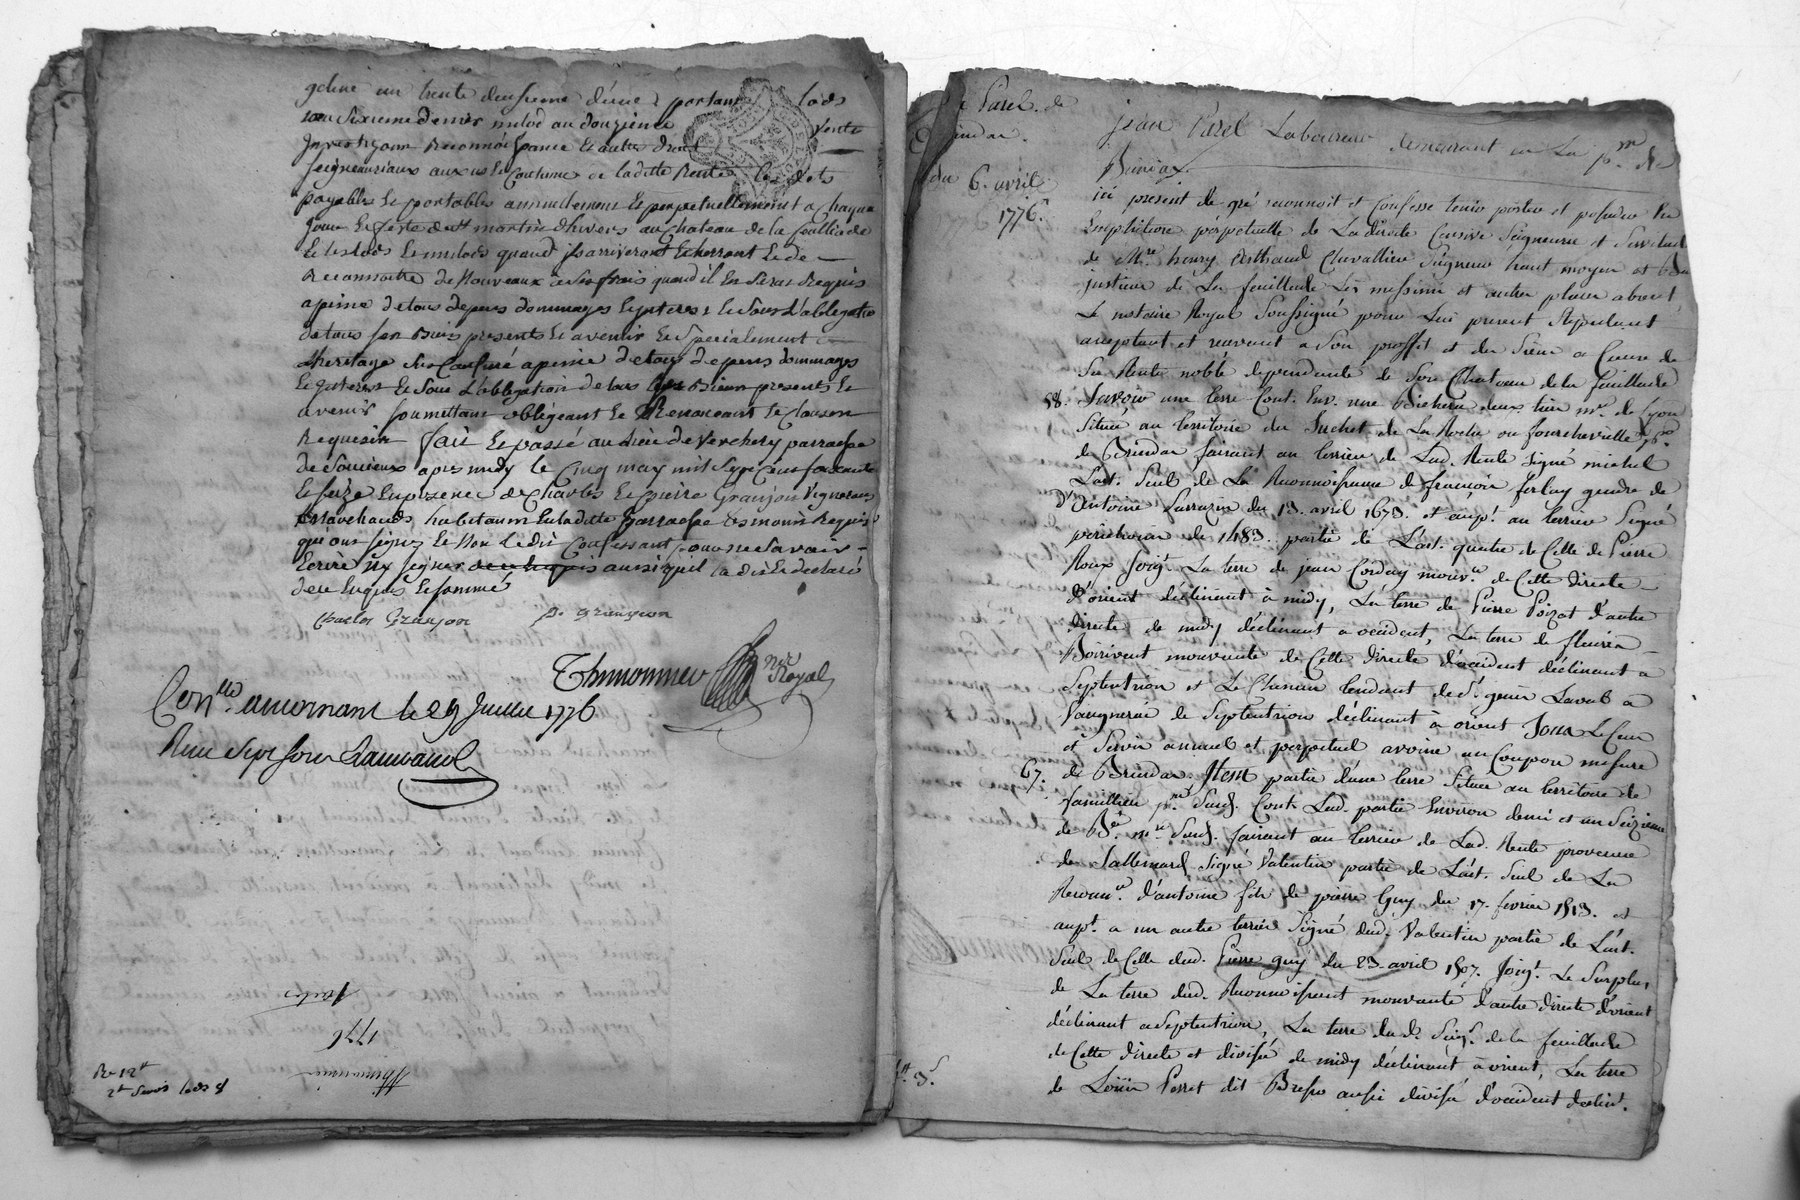 geline un trente deusieme d'une portant lods
un sixieme denier milod au douzieme vente
Investizon Reconnoissance & autre Droit
seigneuriaux aux us & Coutume de laditte Rente les dts
payables & portables annuellement & perpetuellement a chaque
Jour & feste de st martin dhivers au Chateau de la feulliade
& les lods & milods quand ils arriveront & cherront & de
Reconnoitre de Nouveaux a ses frais quand il En Sera Requis
a peine de tous depens dommages & interes & sous L'obligation
de tous ses Biens presents & avenir & specialement
lheritage sus Confiné a peine de tous depens dommages
& interes & sous L'obligation de tous ses Biens presents &
avenir soumettant obligeant & Renonceant & Clausen
Requesin fait & passé au lieu de Verchery parroesse
de Soucieux apres midy le Cinq may mil Sept Cent soixante
& seize En presence de Charles & pierre Granjon Vignerons
Marchands habitant En laditte parroesse temoins Requis
qui ont signez & Non ledit Confessant pour ne savoir
Ecrire ny signer de ce Requis aussi quil la dit & declaré
de ce Enquis & sommé
Charles Granjon P. Granjon
Thimonnier nre Royal
Con.lle a mornant le 29 Juillet 1776
Reçu Sept sous
1776
Thimonnier
R. 12s
Parel. de
Brindas.
du 6. avril
1776.
jean Parel Laboureur demeurant en La p.sse de
Brindas.
ici present de gré reconnoit et Confesse tenir porter et posseder En
Emphiteose perpetuelle de La directe Censive Seigneurie et Servitude
de M.re henry Arthaud Chevallier Seigneur haut moyen et Bas
justicier de La feuillade Les messimi et autre places absent
Le notaire Royal Soussigné pour Lui present Stipulant
acceptant et recevant a Son proffit et du Sien a Cause de
Sa Rente noble dependante de Son Chateau de la feuillade
58. Savoir une terre Cont. Env. une Bicherée deux tiers m.re de Lyon
Située au territoire du Suchet de La Roche ou fourchevielle p.sse
de Brindas faisant au terrier de Lad. Rente signé michel
L'art. Seul de La Reconnoissance de françois ferlay gendre de
d'antoine Sarrazin du 13. avril 1673. et aup.t au terrier Signé
de 1483. partie de L'art. quatre de Celle de Pierre
Roux Joig.t La terre de jean Corday mouv.te de Cette directe
d'orient déclinant à midy, La terre de Pierre Poizat d'autre
directe de midy déclinant a occident, La terre de fleurie
Boirivent mouvante de Cette directe d'occident déclinant a
Septentrion et Le Chemin tendant de S.t genis Laval a
Vaugneray de Septentrion déclinant à orient Sous Le Cens
et Servis annuel et perpetuel avoine un Coupon mesure
67. de Brindas. Item partie d'une terre Située au territoire de
p.sse Susd. Cont. Lad. partie Environ demi et un Seizieme
de B.ée m.re Susd. faisant au terrier de Lad. Rente provenue
de Sallemard Signé Valentin partie de L'art. Seul de La
Reconn.ce d'antoine fils de pierre Guy du 17. fevrier 1513. et
aup.t a un autre terrier Signé dud. Valentin partie de L'art.
Seul de Celle dud. Pierre guy du 23. avril 1507. Joig.t Le Surplus
de La terre dud. Reconnoissant mouvante d'autre directe d'orient
déclinant a Septentrion, La terre du d. Seig.r de la feuillade
de Cette directe et divisée de midy déclinant à orient, La terre
de Loüis Perret dit Bresse aussi divisée d'occident declin.t